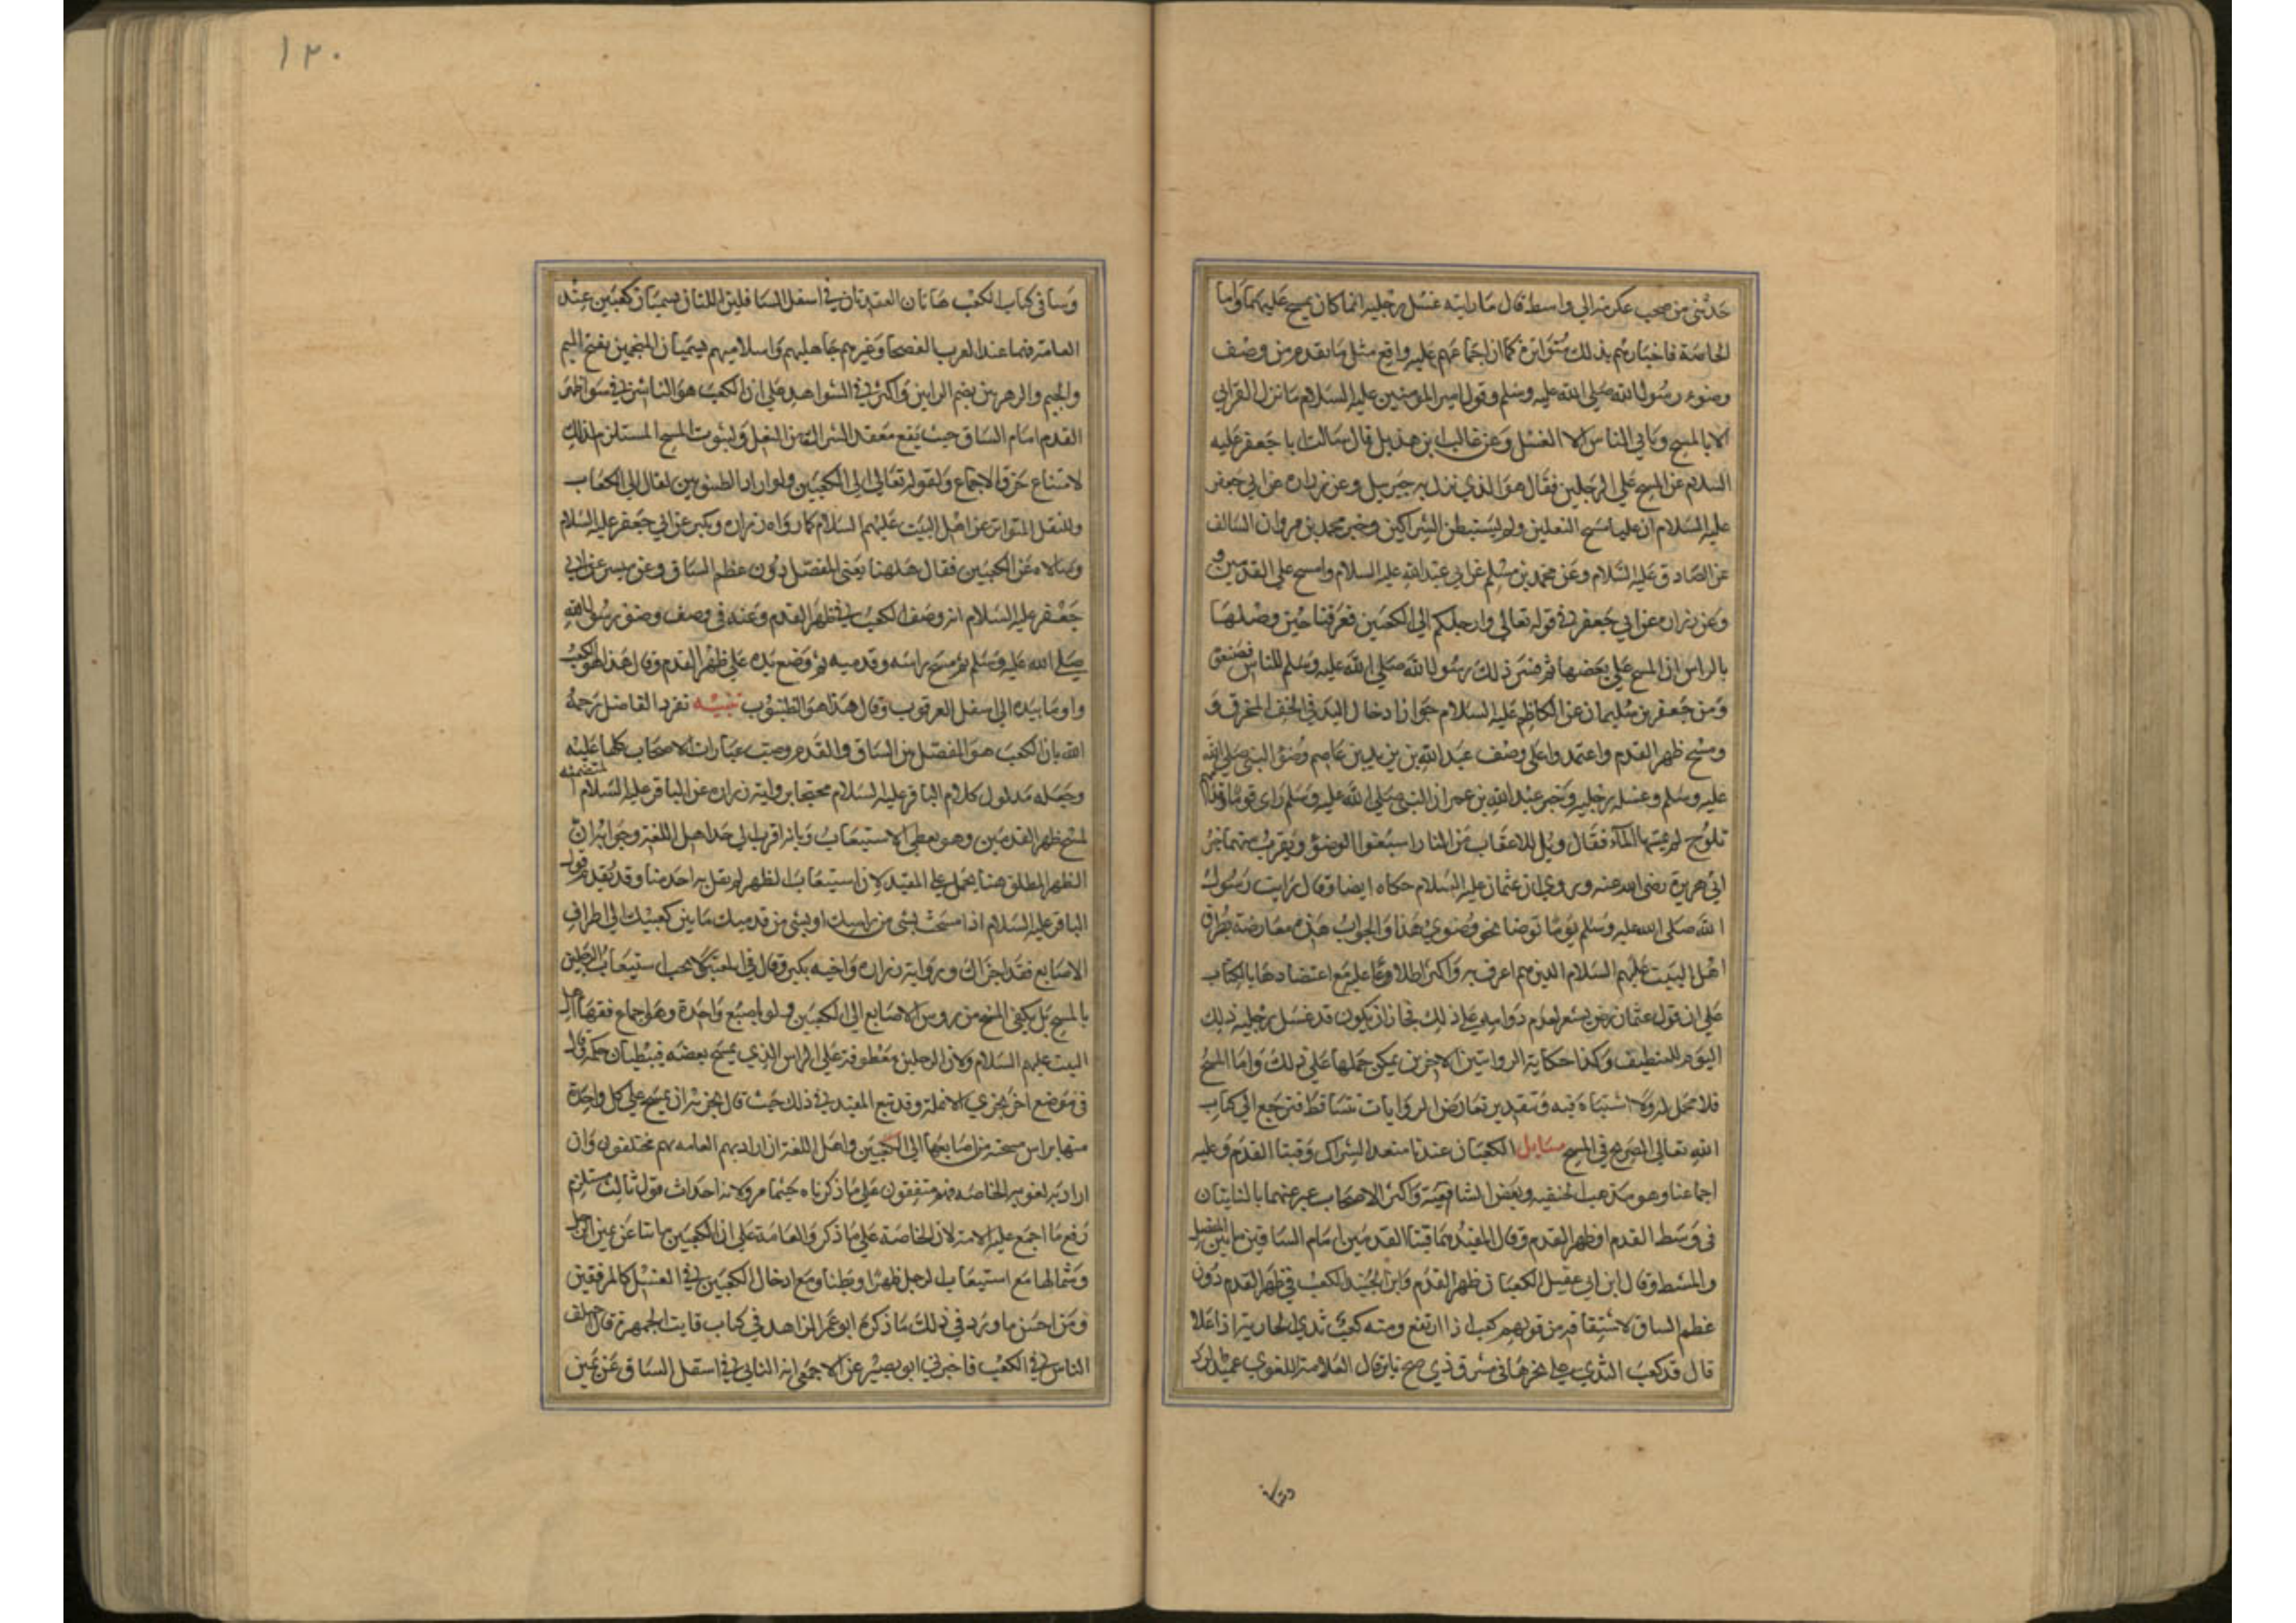 حدثني من صحب عكرمة الى واسط قال ما رايته غسل رجليه انما كان يمسح عليهما واما
الخاصة فاخبارهم بذلك متواترة كما ان اجماعهم عليه واقع مثل ما تقدم من وصف
وضوء رسول الله صلى الله عليه وسلم وقول امير المومنين عليه السلام ما نزل القران
الا بالمسح ويابى الناس الا الغسل وعن غالب بن هذيل قال سالت ابا جعفر عليه
السلام عن المسح على الرجلين فقال هو الذي نزل به جبرييل وعن زراره عن ابي جعفر
عليه السلام ان عليا مسح النعلين ولم يستبطن الشراكين وخبر محمد بن مروان السالف
عن الصادق عليه السلام وعن محمد بن مسلم عن ابي عبد الله عليه السلام وامسح على القدمين
وعن زراره عن ابي جعفر في قوله تعالى وارجلكم الى الكعبين فعرفنا حين وصلها
بالراس ان المسح على بعضها ثم فسر ذلك رسول الله صلى الله عليه وسلم للناس
وعن جعفر بن سليمان عن الكاظم عليه السلام جواز ادخال اليد في الخف المخرق و
ومسح ظهر القدم واعتمدوا على وصف عبد الله بن زيد بن عاصم وضوء النبي صلى الله
عليه وسلم وغسل رجليه وخبر عبد الله بن عمر ان النبي صلى الله عليه وسلم راى قوما
تلوح لم يمسها الماء فقال ويل للاعقاب من النار اسبغوا الوضوء ويقرب منهما خبر
ابي هريرة رضي الله عنه وروي ان عثمان عليه السلام حكاه ايضا وقال رايت رسول
الله صلى الله عليه وسلم يوما توضا نحو وضوي هذا والجواب هذه معارضة بطرق
اهل البيت عليهم السلام الذين هم اعرف به واكثر اطلاعا عليه مع اعتضادها بالكتاب
على ان قول عثمان يشعر بعدم دوامه على ذلك فجاز ان يكون قد غسل رجليه ذلك
اليوم للتنظيف وكذا حكاية الروايتين الاخرين يمكن حملها على ذلك واما المسح
فلا محمل له ولا اشتباه فيه وبتقدير تعارض الروايات تتساقط فنرجع الى كتاب
الله تعالى الصريح في المسح مسايل الكعبان عندنا معقد الشراك وقبتا القدم وعليه
اجماعنا وهو مذهب الحنفيه وبعض الشافعية واكثر الاصحاب عبر عنهما بالناتيان
في وسط القدم او ظهر القدم وقال المفيد هما قبتا القدمين امام الساقين ما بين المفصل
والمشط وقال ابن ابي عقيل الكعبان ظهر القدم وابن الجنيد الكعب في ظهر القدم دون
عظم الساق لاشتقاقه من قولهم كعب اذا ارتفع ومنه كعب ثدي الجارية اذا علا
قال قد كعب الثدي على نحرها في مشرق ذي قال العلامة اللغوي عميد
وسا
وسا في كتاب الكعب هاتان العقدتان في اسفل الساقين اللتان تسميان كعبين عند
العامة فهما عند العرب الفصحا وغيرهم جاهليهم واسلاميهم يسميان المنجمين بفتح الميم
والجيم والرهرهين بضم الرايين واكثر في الشواهد على ان الكعب هو الناشز في سواء ظهر
القدم امام الساق حيث يقع معقد الشراك من النعل ولثبوت المسح المستلزم لذلك
لامتناع خرق الاجماع ولقوله تعالى الى الكعبين ولو اراد الظنبوبين لقال الى الكعاب
وللنقل المتواتر عن اهل البيت عليهم السلام كما رواه زراره وبكير عن ابي جعفر عليه السلام
وسالاه عن الكعبين فقال هاهنا يعني المفصل دون عظم الساق وعن ميسر عن ابي
جعفر عليه السلام انه وصف الكعب في ظهر القدم وعنه في وصف وضوء رسول الله
صلى الله عليه وسلم ثم مسح راسه وقدميه ثم وضع يده على ظهر القدم وقال هذا هو الكعب
واوما بيده الى اسفل العرقوب وقال هذا هو الظنبوب تنبيه تفرد الفاضل رحمه
الله بان الكعب هو المفصل من الساق والقدم وصب عبارات الاصحاب كلها عليه
وجعله مدلول كلام الباقر عليه السلام محتجا برواية زراره عن الباقر عليه السلام المتضمنه
لمسح ظهر القدمين وهو يعطي الاستيعاب وبانه اقرب الى حد اهل اللغة وجوابه ان
الظهر المطلق هنا يحمل على المقيد لان استيعاب الظهر لم يقل به احد منا وقد تقدم قول
الباقر عليه السلام اذا مسحت بشي من راسك او بشي من قدميك ما بين كعبيك الى اطراف
الاصابع فقد اجزاك ورواية زراره واخيه بكير وقال في المعتبر لا يجب استيعاب الرجلين
بالمسح بل يكفي المسح من روس الاصابع الى الكعبين ولو باصبع واحدة وهو اجماع فقها اهل
البيت عليهم السلام ولان الرجلين معطوفة على الراس الذي يمسح بعضه فيعطيان حكمه قال
في موضع اخر يجزي الانملة وقد تبع المفيد في ذلك حيث قال يجزيه ان يمسح على كل واحدة
منها براس مسبحته من اصابعها الى الكعبين واهل اللغة ان اراد بهم العامه فهم مختلفون وان
اراد به لغويه الخاصه فهم متفقون على ما ذكرناه حسبما مر ولانه احداث قول ثالث مستلزم
رفع ما اجمع عليه الامة لان الخاصة على ما ذكر والعامة على ان الكعبين ما نتا عن يمين الرجل
وشمالها مع استيعاب الرجل ظهرا وبطنا ومع ادخال الكعبين في الغسل كالمرفقين
ومن احسن ما ورد في ذلك ما ذكره ابو عمر الزاهد في كتاب فايت الجمهرة قال اختلف
الناس في الكعب فاخبرني ابو نصر عن الاصمعي انه الناتي في اسفل الساق عن يمين
١٢٠